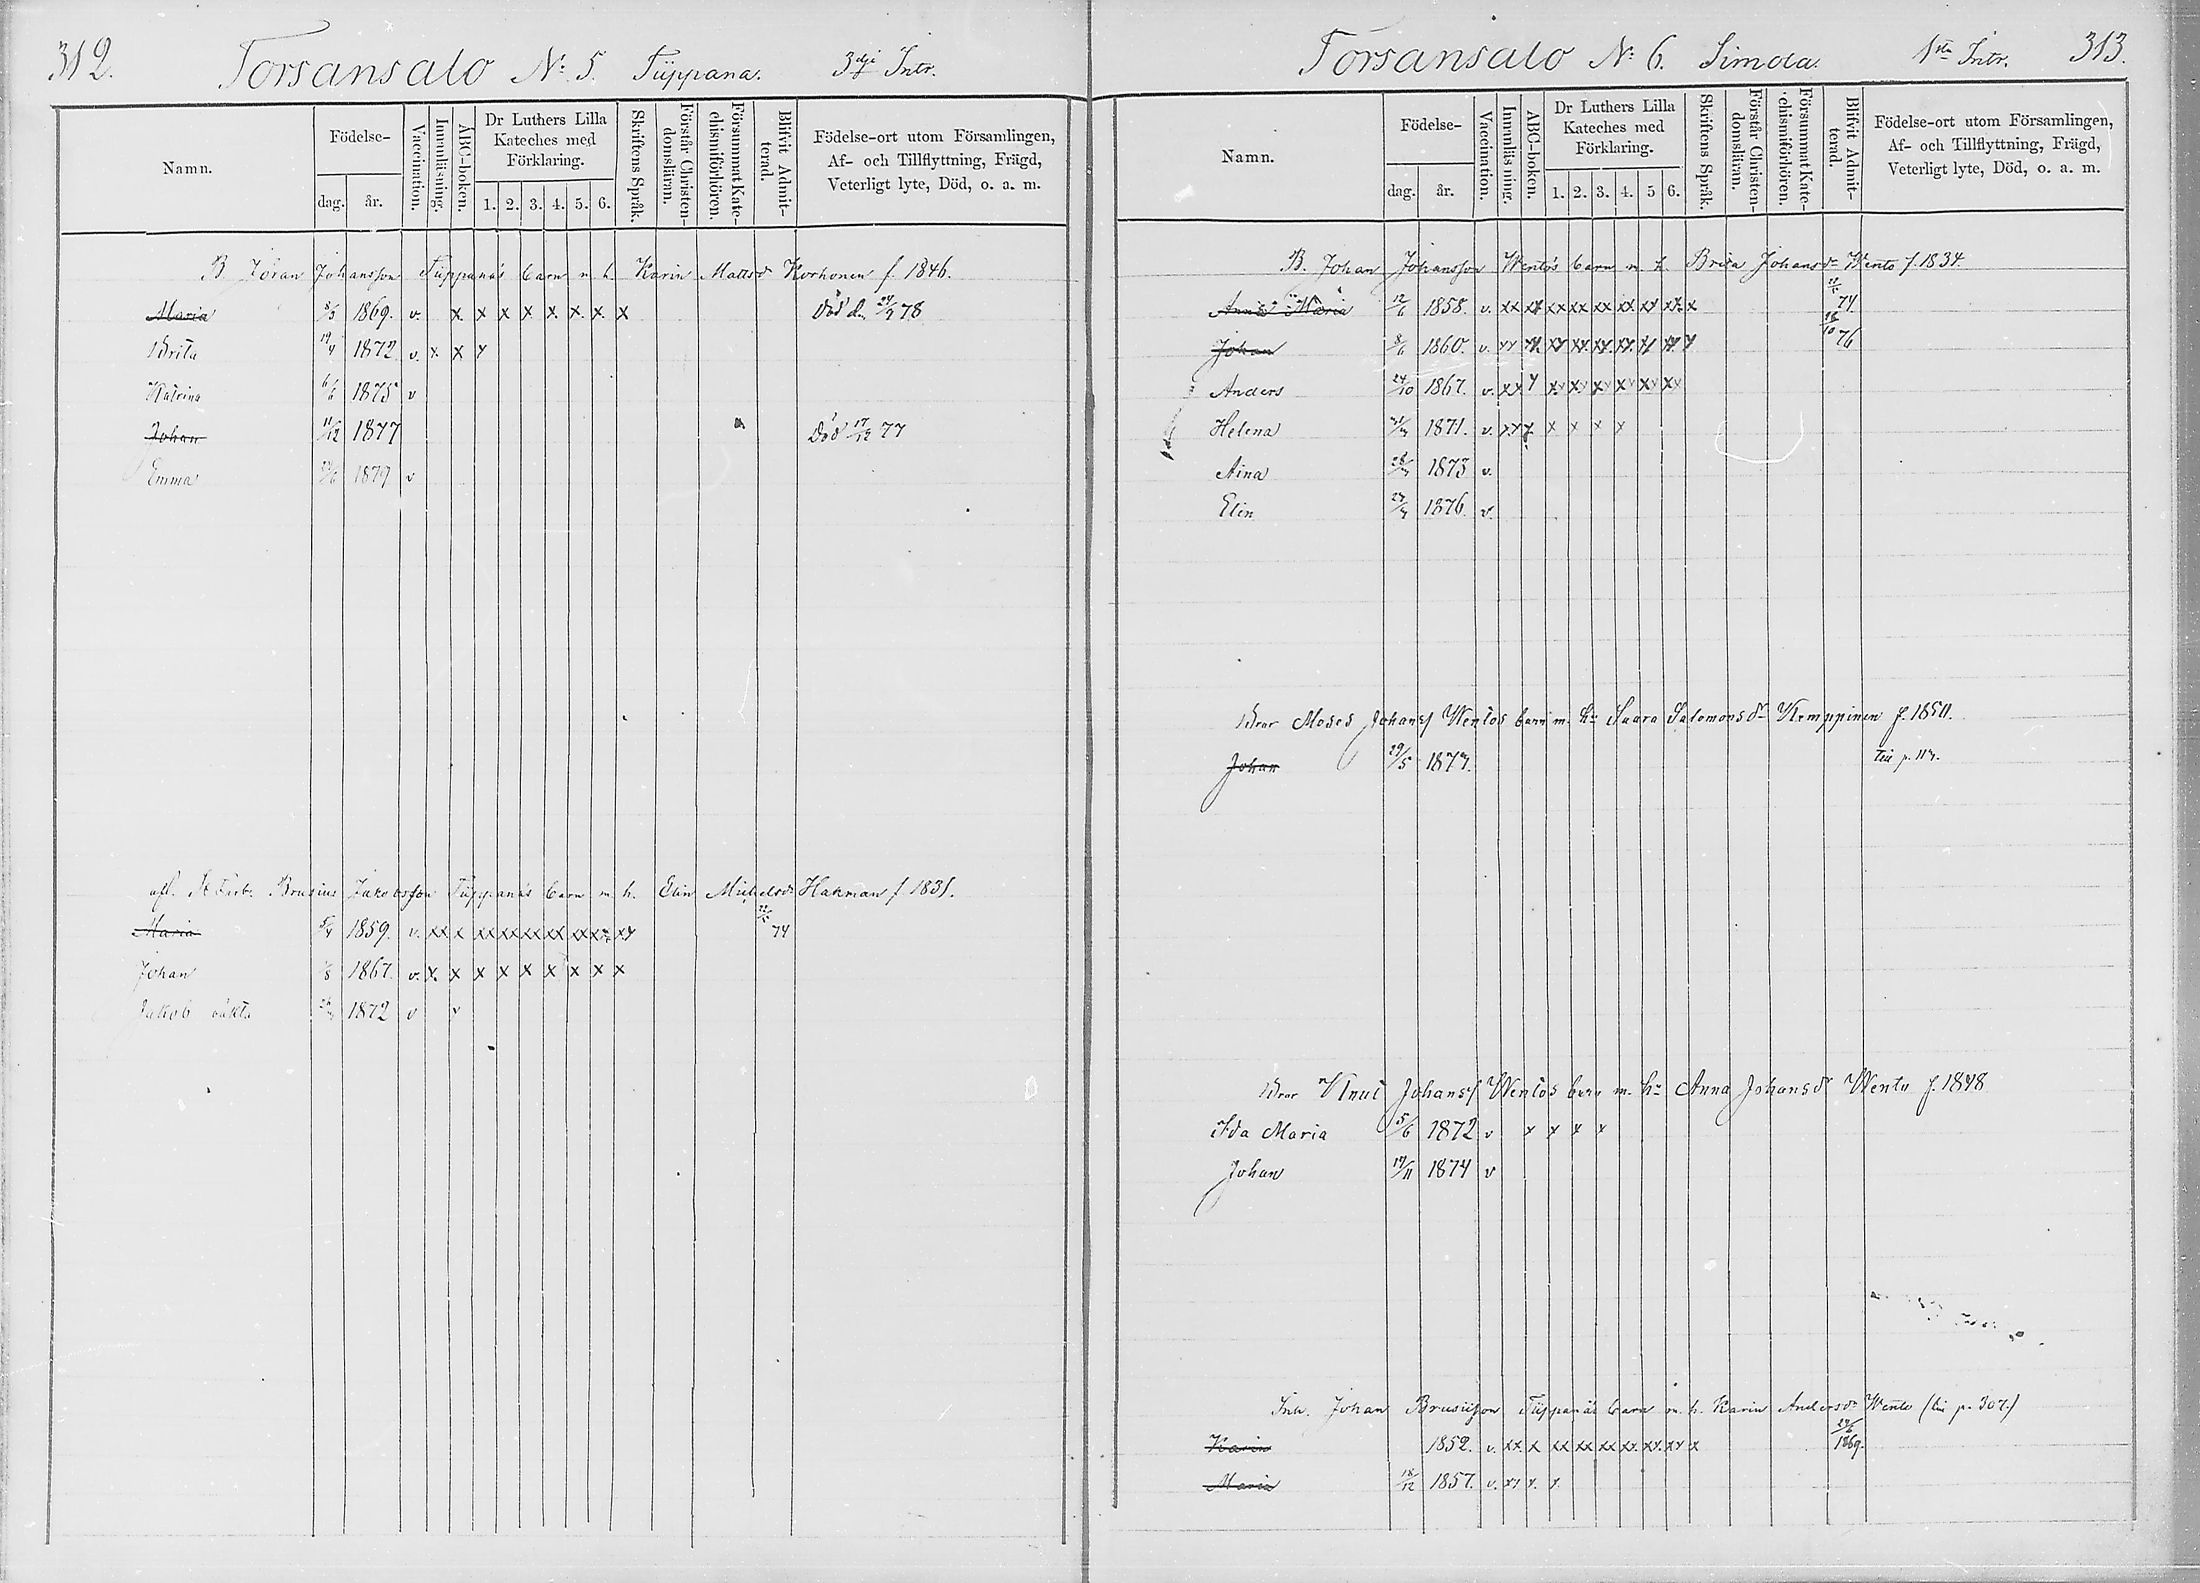 312.
Torsansalo No 5. Tiippana. 3dje Intr.
Namn.
Födelse-
dag.
år.
Vaccination.
Innanläsning.
ABC-boken.
Dr Luthers Lilla
Kateches med
Förklaring.
1. 2. 3. 4. 5. 6.
Skriftens Språk.
Förstår Christen-
domsläran.
Försummat Kate-
chismiförhören.
Blifvit Admit-
terad.
Födelse-ort utom Församlingen,
Af- och Tillflyttning, Frägd,
Veterligt lyte, Död, o. a. m.
B. Jöran Johansson Tiippana's barn m. h. Karin Mattsdr Korhonen f. 1846.
Maria 8/3 1869. v. x x x x x x x x Död d. 24/9 78
Brita 19/4 1872 v. x x x
Katrina 6/6 1875 v
Johan 11/12 1877 Död 17/12 77
Emma 1879 v
Brusius Jakobsson Tiippana's barn m. h. Elin Michelsdr Hakman f. 1831.
Maria 5/4 1859. v. xx x xx xx xx xx xx xx xx 74
Johan 1867. v. x. x x x x x x x x
Jakob oäkta 1872 v v
Torsansalo No 6. Simola. 1sta Intr. 313.
Namn.
Födelse-
dag.
år.
Vaccination.
Innanläsning.
ABC-boken.
Dr Luthers Lilla
Kateches med
Förklaring.
1. 2. 3. 4. 5 6.
Skriftens Språk.
Förstår Christen-
domsläran.
Försummat Kate-
chismiförhören.
Blifvit Admit-
terad.
Födelse-ort utom Församlingen,
Af- och Tillflyttning, Frägd,
Veterligt lyte, Död, o. a. m.
B. Johan Johansson Wento's barn m. h. Brita Johansdr Wento f. 1834.
Anna Maria 12/6 1858. v. xx xx xx xx xx xx xx xx x 74.
Johan 8/6 1860. v. xx xx xx xx xx xx xx xx x 18/10 76
Anders 24/10 1867. v. xx x xx xx xx xx xx xx
Helena 1871. v. xx x x x x x
Aina 1873 v.
Elin 1876. v.
Bror Moses Johanss Wentos barn m. hu Saara Salomonsdr Kemppinen f. 1850.
Johan 29/5 1877. till p. 117.
Bror Knut Johanss Wentos barn m. hu Anna Johansdr Wento f. 1848
Ida Maria 5/6 1872 v x x x x
Johan 19/11 1874 v
Inh. Johan Brusiisson Tiippana's barn m. h. Karin Andersdr Wento (till p. 307.)
Karin 1852. v. xx x xx xx xx xx xx xx x 1869.
Maria 18/12 1857. v. xx x. x